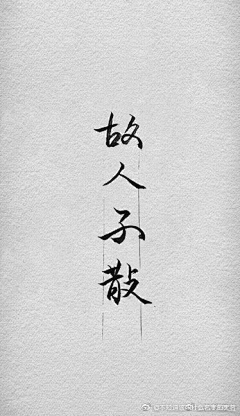 故人不散